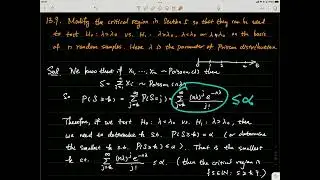 13.9. Modify the critical region in Section 5 so that they can be used
to test H₀: λ=λ₀ vs. H₁: λ>λ₀ on the basis
of n random samples. Here λ is the parameter of Poisson distribution
Sol. We know that if X₁, ⋯, ~ Poisson(λ) then
S = Σ Xᵢ ~ Poisson(nλ)
So P(S≥k) = Σ_{j=k}^∞ P(S=j) = Σ_{j=k}^∞ (nλ)^j e^{-nλ} / j! ≤ α
Therefore, if we test H₀: λ=λ₀ vs. H₁: λ>λ₀, then
we need to determine k s.t. P(S≥k)=α (or determine
the smallest k s.t. P(S≥k) ≤ α). That is the smallest
k s.t. Σ_{j=k}^∞ (nλ)^j e^{-nλ} / j! ≤ α (then the critical region is